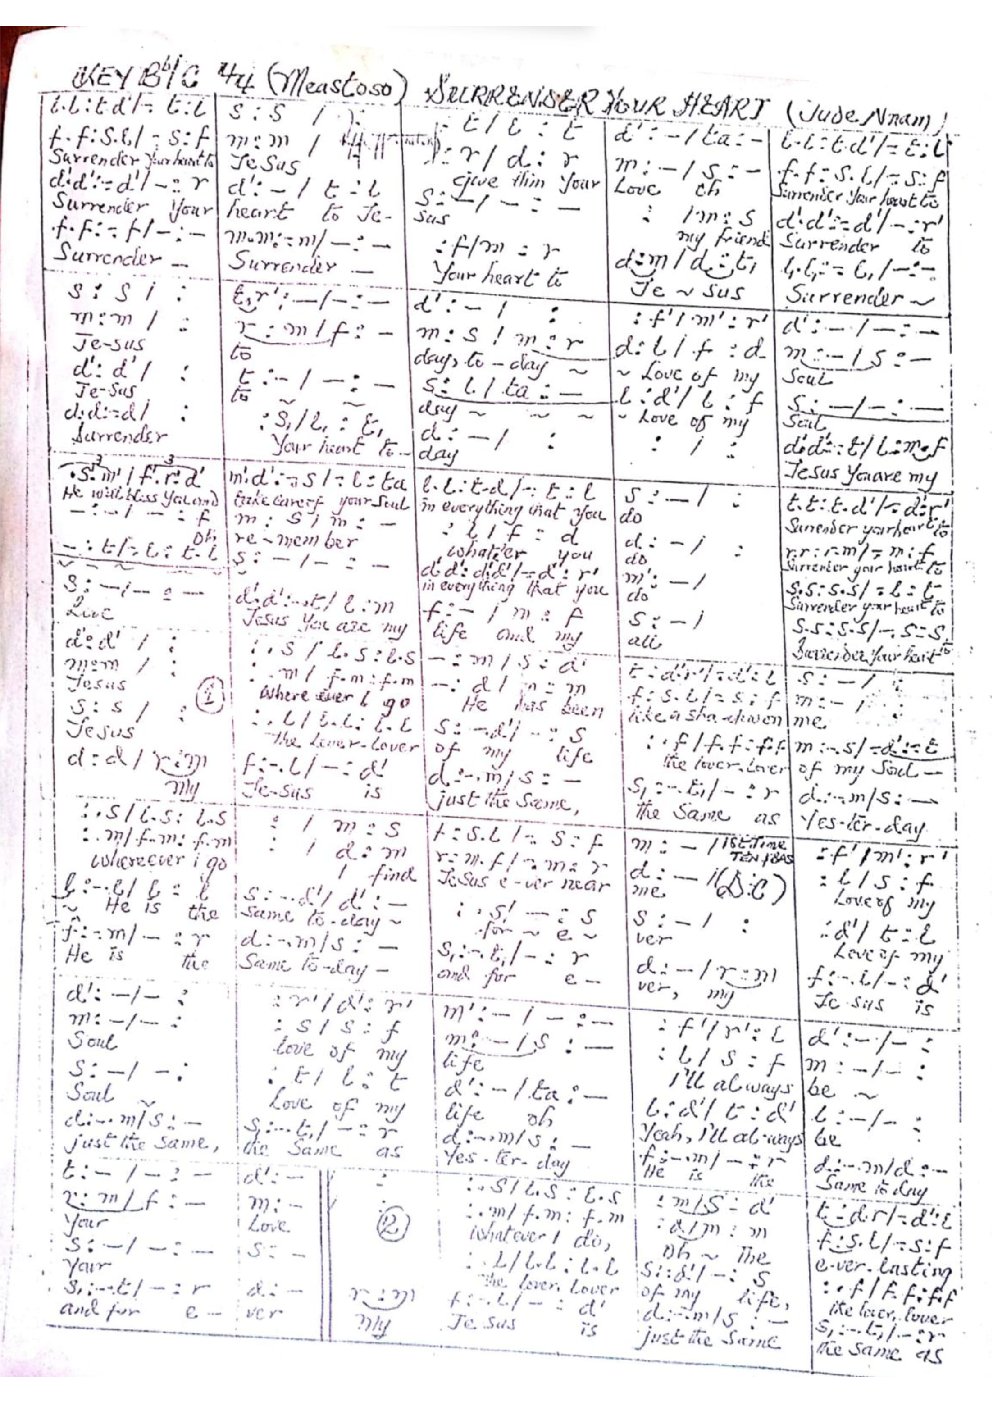 KEY Bb/C 4/4 (Meastoso) SURRENDER YOUR HEART (Jude Nnam)
l.l:t.d'/-: t:l
f.f:s.l/-:s:f
Surrender your heart to
d'.d':-d'/-:r
Surrender your
.f.f:-f/-:-
Surrender —
s:s / :
m:m / :
Je sus
d':-/t:l
heart to Je-
m.m:-m/-:-
Surrender —
: t/l : t
: r/d : r
give him your
s:-/-:-
sus
:f/m : r
Your heart to
d':-/ta:-
m:-/s:-
Love oh
: /m:s
my friend
d:m/d:t,
Je ~ sus
l.l:t.d'/-:t:l
f.f:s.l/-:s:f
Surrender your heart to
d'.d':-d'/-:r'
Surrender to
l,.l,:-l,/-:-
Surrender ~
s:s / :
m:m / :
Je-sus
d':d' / :
Je-sus
d.d:-d/ :
Surrender
t,r':-/-:-
r:m/f:-
to
t:-/-:-
to ~ ~
:s,/l,:t,
Your heart to-
d':-/ :
m:s/m:r
days, to-day ~
s:l/ta:-
day ~ ~ ~
d:-/ :
day
:f'/m':r'
d:l/f:d
~ Love of my
l:d'/l:f
~ Love of my
: / :
d':-/-:-
m:-/s:-
Soul
s:-/-:-
Soul
d'.d':-t/l:m.f
Jesus you are my
.s:m'/f'.r':d'
He will bless you and
-:-/-:f
Oh
-:t/-l:t.l
s:-/-:-
Love
m'.d':-s/-l:ta
take care of your Soul
m:s/m:-
re-member
s:-/-:-
d'.d':-.t/l:m
Jesus You are my
l.l:t.d/-:t:l
in everything that you
:l/f:d
whatever you
d'.d':d'.d'/-d':r'
in everything that you
f:-/m:f
life and my
s:-/ :
do
d:-/ :
do
m':-/
do
s:-/
all
t.t:t.d'/-d':r'
Surrender your heart to
r.r:r.m/-m:f
Surrender your heart to
s.s:s.s/-l:t
Surrender your heart to
s.s:s.s/-.s:s
Surrender your heart to
d':d' / :
m:m / :
Jesus
s:s / :
Jesus
d:d/r:m
my
①
:.s/l.s:l.s
:.m/f.m:f.m
Where ever I go
:.l/l.l:l.l
the lover-lover
f:-.l/-:d'
Je-sus is
-:m/s:d'
-:d/m:m
He has been
s:-d'/-:s
of my life
d:-.m/s:-
just the Same,
t:d'.r'/-d':l
f:s.l/-s:f
like a sha-dow on
:.f/f.f:f.f
the lover, lover
s,:-.t,/-:r
the same as
s:-/ :
m:-/ :
me
m:-.s/-d':t
of my Soul —
d:-.m/s:-
Yes-ter-day
:.s/l.s:l.s
:.m/f.m:f.m
Wherever i go
l:-.l/l:l
~ He is the
f:-m/-:r
He is the
: / m:s
: / d:m
I find
s:-.d'/d':-
same to-day ~
d:-.m/s:-
Same to-day -
t:s.l/-s:f
r:m.f/-m:r
Jesus e-ver near
:.s/-:s
for ~ e ~
s,:-.t,/-:r
and for e-
m:-/1st Time
d:-/(D:C)
me
s:-/ :
ver
d:-/r:m
ver, my
:f'/m':r'
:l/s:f
Love of my
:d'/t:l
Love of my
f:-.l/-:d'
Je sus is
d':-/-:
m:-/-:
Soul
s:-/-:
Soul ~
d:-.m/s:-
just the Same,
:r'/d':r'
:s/s:f
love of my
:t/l:t
Love of my
s,:-.t,/-:r
the Same as
m':-/-:-
m:-/s:-
life
d':-/ta:-
life oh
d:-.m/s:-
Yes-ter-day
:f'/r':l
:l/s:f
I'll always
l:d'/t:d'
Yeah, I'll al-ways
f:-m/-:r
He is the
d':-/-:
m:-/-:
be ~
l:-/-:
be
d:-.m/d:-
Same to day
t:-/-:-
r:m/f:-
Your
s:-/-:-
Your
s,:-.t,/-:r
and for e-
d':-
m:-
Love
s:-
d:-
ver
:
②
r:m
My
:.s/l.s:l.s
:.m/f.m:f.m
Whatever I do,
:.l/l.l:l.l
the lover, lover
f:-.l/-:d'
Je sus is
:m/s:d'
:d/m:m
Oh ~ The
s:d'/-:s
of my life,
d:-.m/s:-
just the Same
t:d'.r'/-d':l
f:s.l/-s:f
e-ver-lasting
:.f/f.f:f.f
the lover, lover
s,:-.t,/-:r
the same as